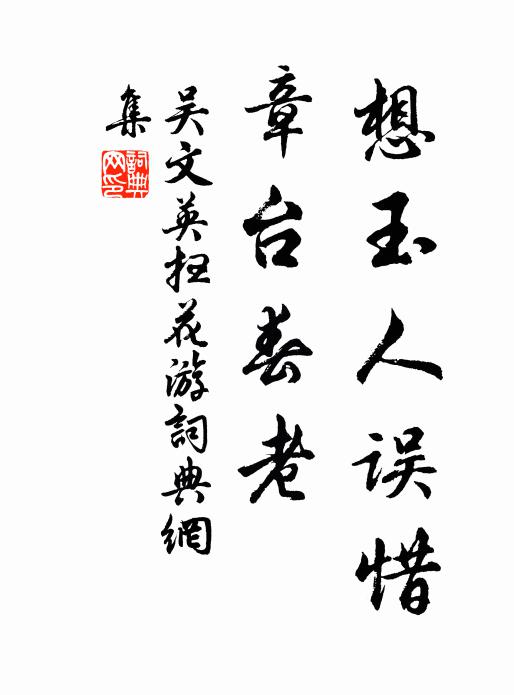 想玉人误惜
章台春老
吴文英扫花游詞典網
集
詞典网印